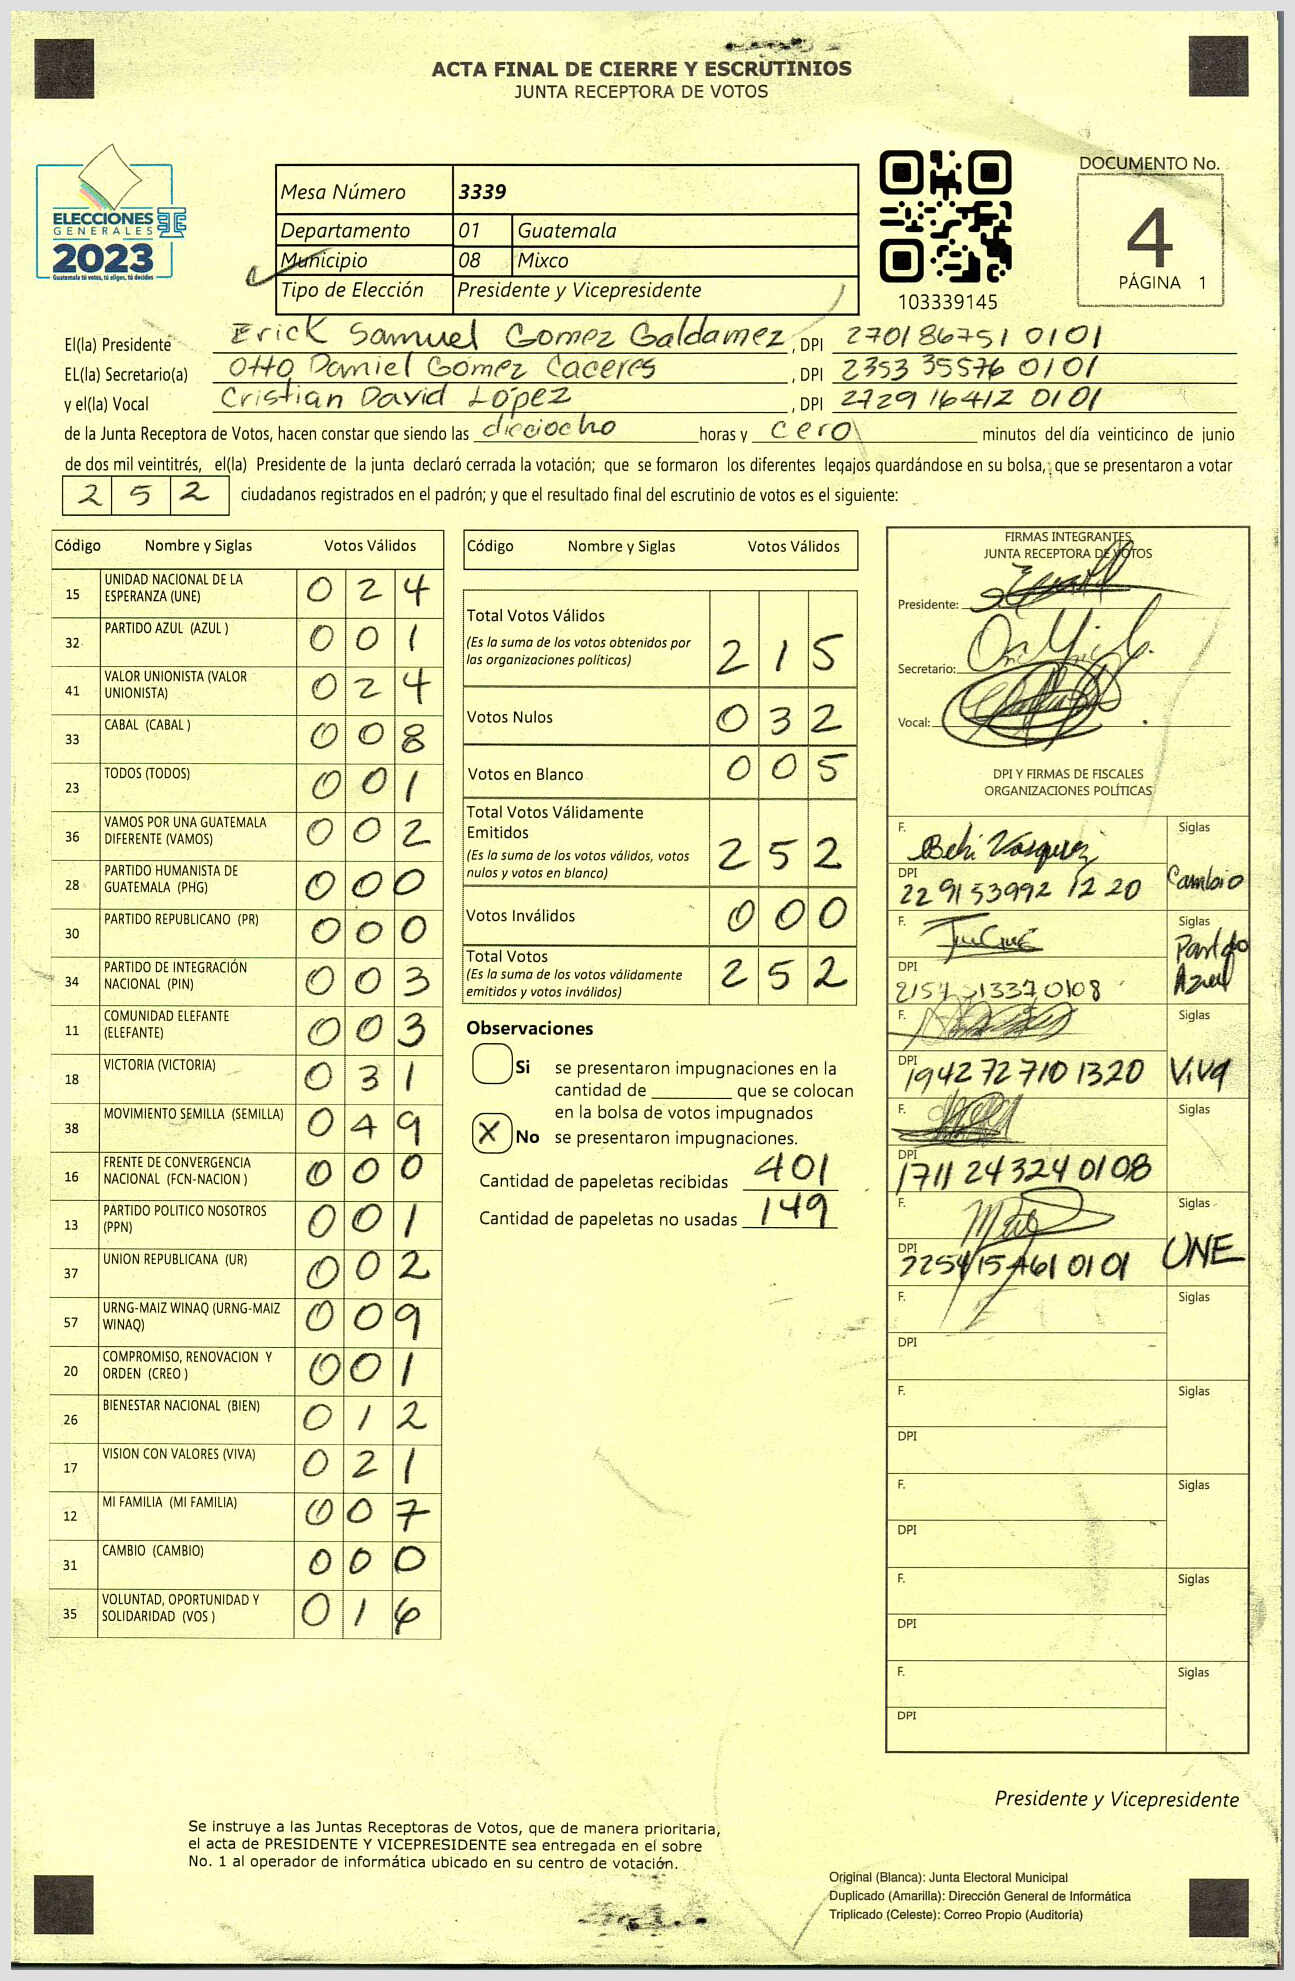 ACTA FINAL DE CIERRE Y ESCRUTINIOS
JUNTA RECEPTORA DE VOTOS
ELECCIONES
GENERALES
2023
Guatemala tú votas, tú eliges, tú decides
Mesa Número 3339
Departamento 01 Guatemala
Municipio 08 Mixco
Tipo de Elección Presidente y Vicepresidente
103339145
DOCUMENTO No.
4
PÁGINA 1
El(la) Presidente Erick Samuel Gomez Galdamez, DPI 2701867510101
EL(la) Secretario(a) Otto Daniel Gomez Caceres, DPI 2353 35576 0101
y el(la) Vocal Cristian David López, DPI 2729 16412 0101
de la Junta Receptora de Votos, hacen constar que siendo las dieciocho horas y cero minutos del día veinticinco de junio
de dos mil veintitrés, el(la) Presidente de la junta declaró cerrada la votación; que se formaron los diferentes legajos guardándose en su bolsa, que se presentaron a votar
252 ciudadanos registrados en el padrón; y que el resultado final del escrutinio de votos es el siguiente:
Código Nombre y Siglas Votos Válidos
15 UNIDAD NACIONAL DE LA ESPERANZA (UNE) 024
32 PARTIDO AZUL (AZUL ) 001
41 VALOR UNIONISTA (VALOR UNIONISTA) 024
33 CABAL (CABAL ) 008
23 TODOS (TODOS) 001
36 VAMOS POR UNA GUATEMALA DIFERENTE (VAMOS) 002
28 PARTIDO HUMANISTA DE GUATEMALA (PHG) 000
30 PARTIDO REPUBLICANO (PR) 000
34 PARTIDO DE INTEGRACIÓN NACIONAL (PIN) 003
11 COMUNIDAD ELEFANTE (ELEFANTE) 003
18 VICTORIA (VICTORIA) 031
38 MOVIMIENTO SEMILLA (SEMILLA) 049
16 FRENTE DE CONVERGENCIA NACIONAL (FCN-NACION ) 000
13 PARTIDO POLITICO NOSOTROS (PPN) 001
37 UNION REPUBLICANA (UR) 002
57 URNG-MAIZ WINAQ (URNG-MAIZ WINAQ) 009
20 COMPROMISO, RENOVACION Y ORDEN (CREO ) 001
26 BIENESTAR NACIONAL (BIEN) 012
17 VISION CON VALORES (VIVA) 021
12 MI FAMILIA (MI FAMILIA) 007
31 CAMBIO (CAMBIO) 000
35 VOLUNTAD, OPORTUNIDAD Y SOLIDARIDAD (VOS ) 016
Código Nombre y Siglas Votos Válidos
Total Votos Válidos 215
(Es la suma de los votos obtenidos por
las organizaciones políticas)
Votos Nulos 032
Votos en Blanco 005
Total Votos Válidamente
Emitidos 252
(Es la suma de los votos válidos, votos
nulos y votos en blanco)
Votos Inválidos 000
Total Votos 252
(Es la suma de los votos válidamente
emitidos y votos inválidos)
Observaciones
Si se presentaron impugnaciones en la
cantidad de ________ que se colocan
en la bolsa de votos impugnados
X No se presentaron impugnaciones.
Cantidad de papeletas recibidas 401
Cantidad de papeletas no usadas 149
FIRMAS INTEGRANTES
JUNTA RECEPTORA DE VOTOS
Presidente:
Secretario:
Vocal:
DPI Y FIRMAS DE FISCALES
ORGANIZACIONES POLÍTICAS
F. Beki Vasquez Siglas
DPI 2291 53992 1220 Cambio
F. Siglas
DPI Partido Azul
F. Siglas
DPI 1942 72710 1320 Viva
F. Siglas
DPI 1711 24324 0108
F. Siglas
DPI UNE
F. Siglas
DPI
F. Siglas
DPI
F. Siglas
DPI
F. Siglas
DPI
F. Siglas
DPI
Presidente y Vicepresidente
Se instruye a las Juntas Receptoras de Votos, que de manera prioritaria,
el acta de PRESIDENTE Y VICEPRESIDENTE sea entregada en el sobre
No. 1 al operador de informática ubicado en su centro de votación.
Original (Blanca): Junta Electoral Municipal
Duplicado (Amarilla): Dirección General de Informática
Triplicado (Celeste): Correo Propio (Auditoría)